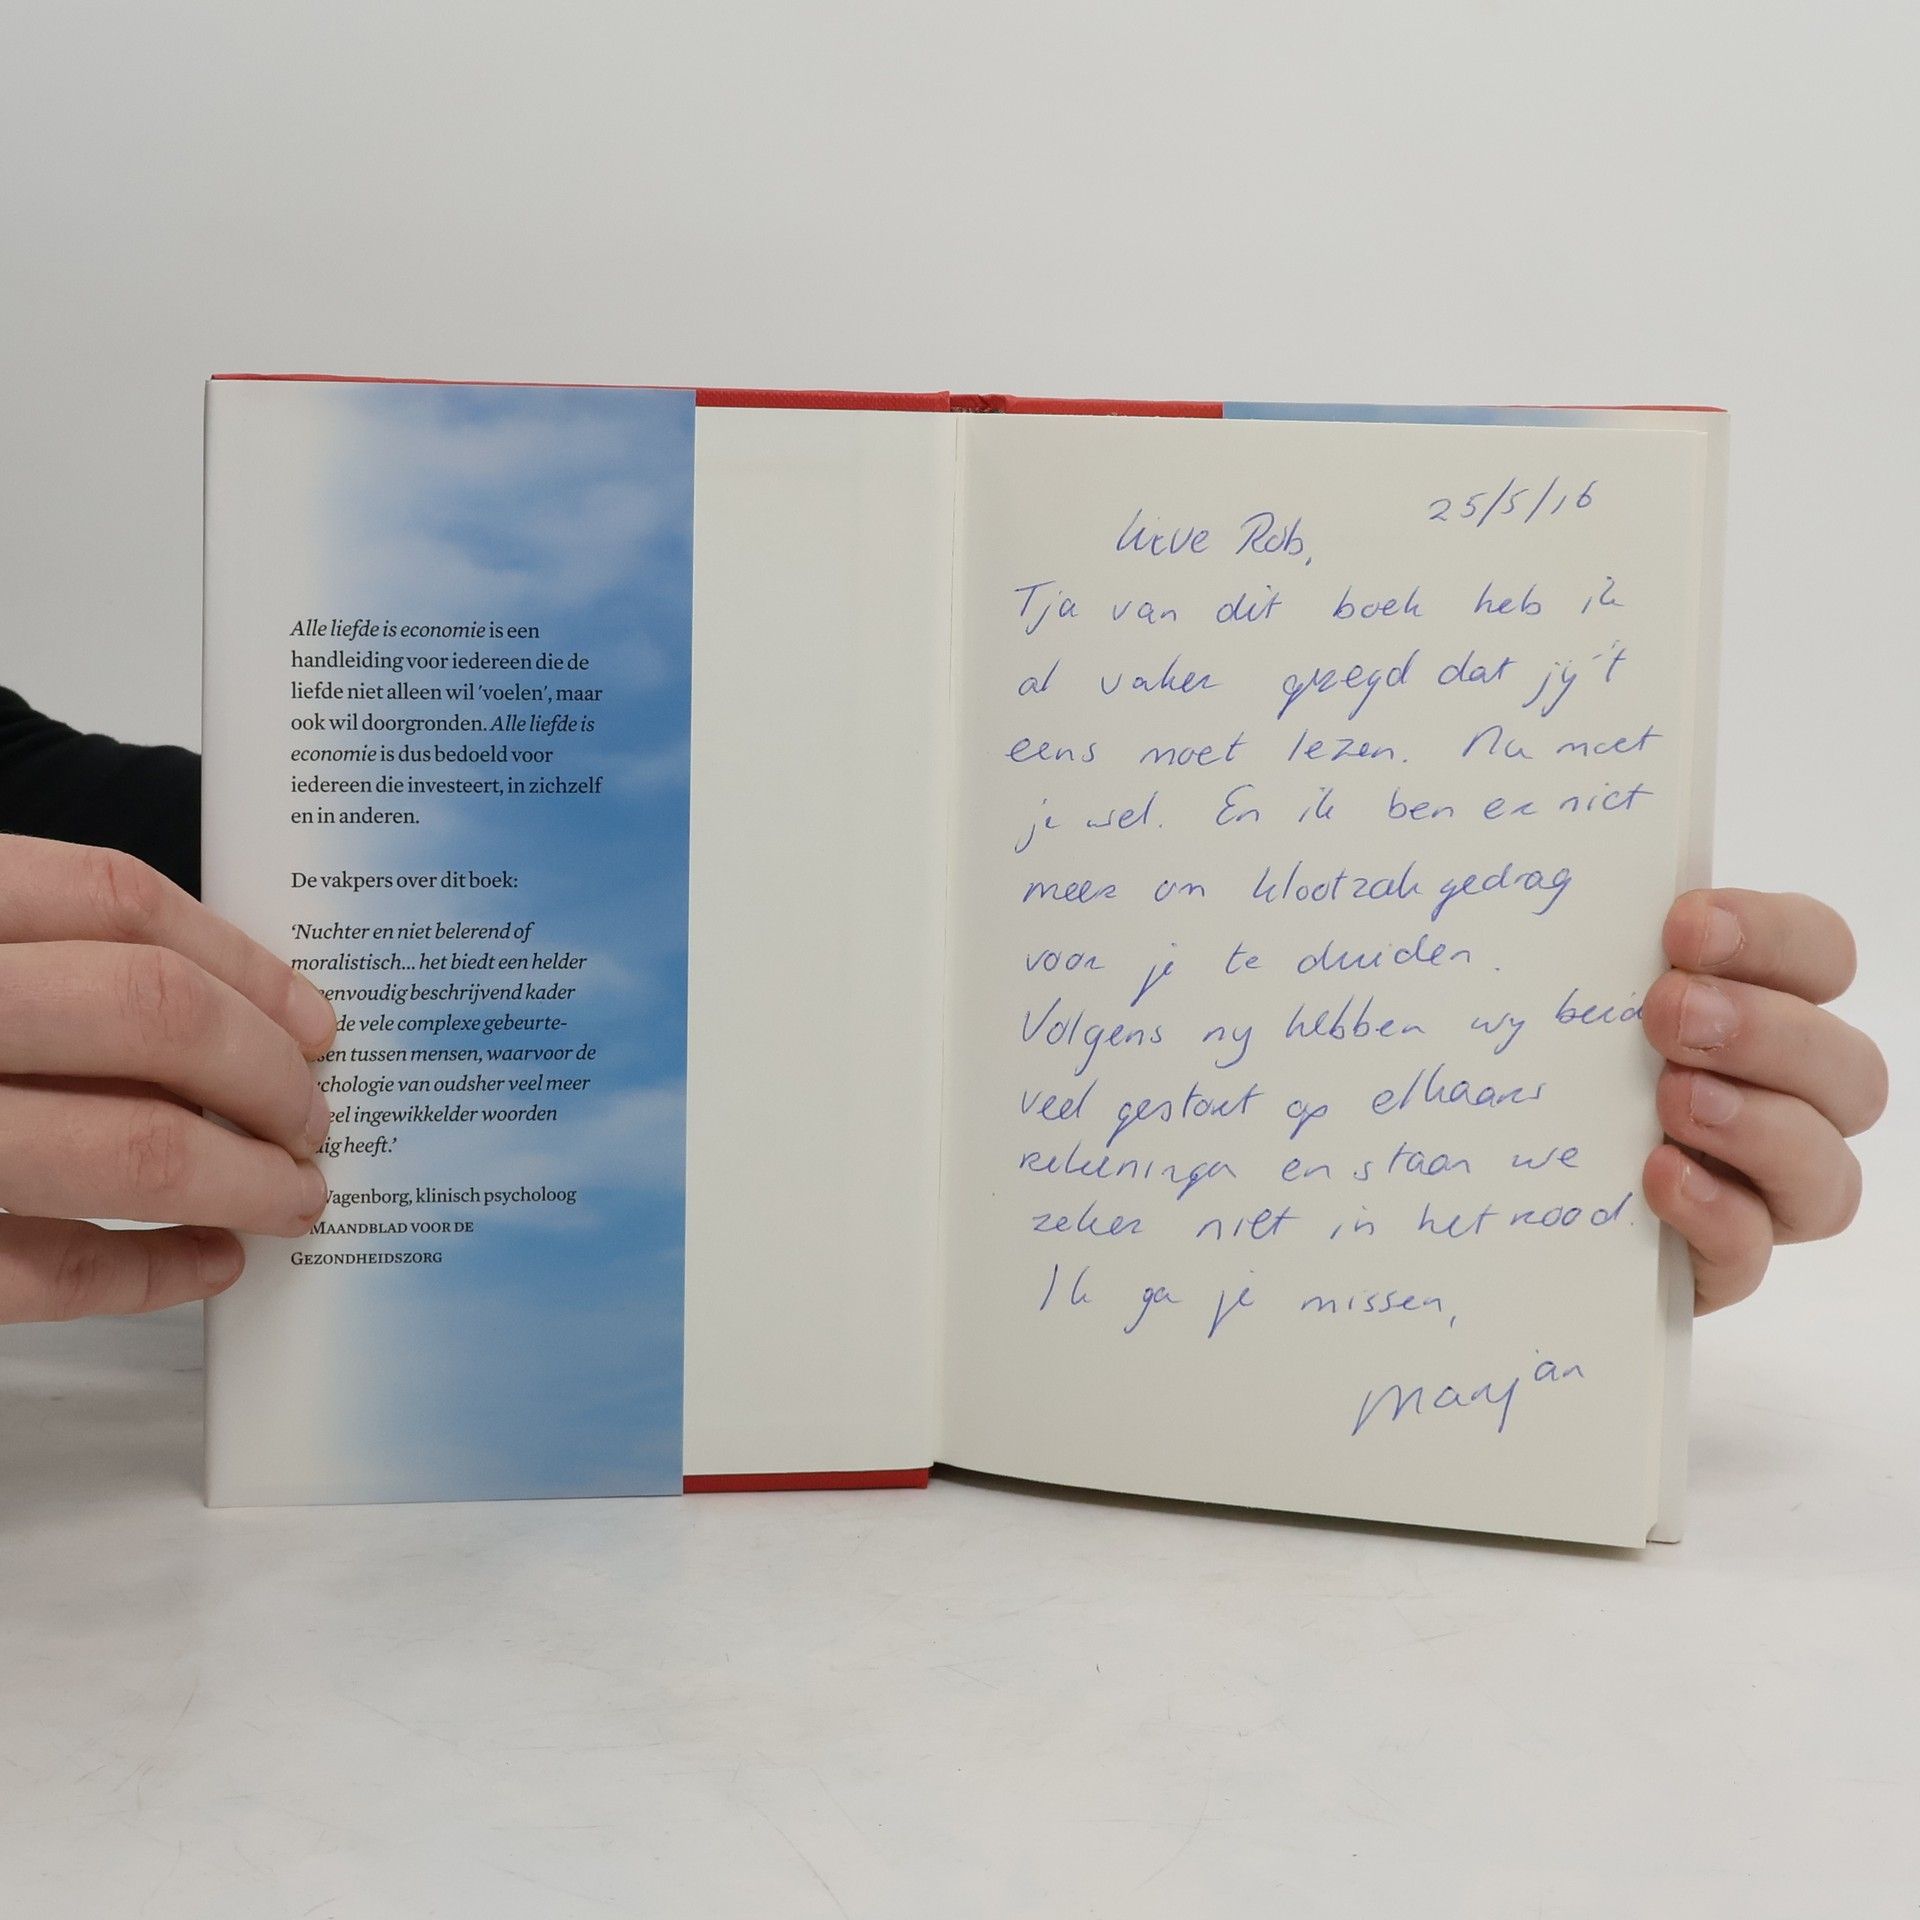 Alle liefde is economie is een
handleiding voor iedereen die de
liefde niet alleen wil 'voelen', maar
ook wil doorgronden. Alle liefde is
economie is dus bedoeld voor
iedereen die investeert, in zichzelf
en in anderen.
De vakpers over dit boek:
‘Nuchter en niet belerend of
moralistisch... het biedt een helder
envoudig beschrijvend kader
de vele complexe gebeurte-
sen tussen mensen, waarvoor de
ychologie van oudsher veel meer
eel ingewikkelder woorden
ig heeft.’
Wagenborg, klinisch psycholoog
MAANDBLAD VOOR DE
GEZONDHEIDSZORG
25/5/16
Lieve Rob,
Tja van dit boek heb ik
al vaker gezegd dat jij 't
eens moet lezen. Nu moet
je wel. En ik ben er niet
meer om klootzak gedrag
voor je te duiden.
Volgens mij hebben wij beid
veel gestort op elkaars
rekeningen en staan we
zeker niet in het rood.
Ik ga je missen,
Marjan